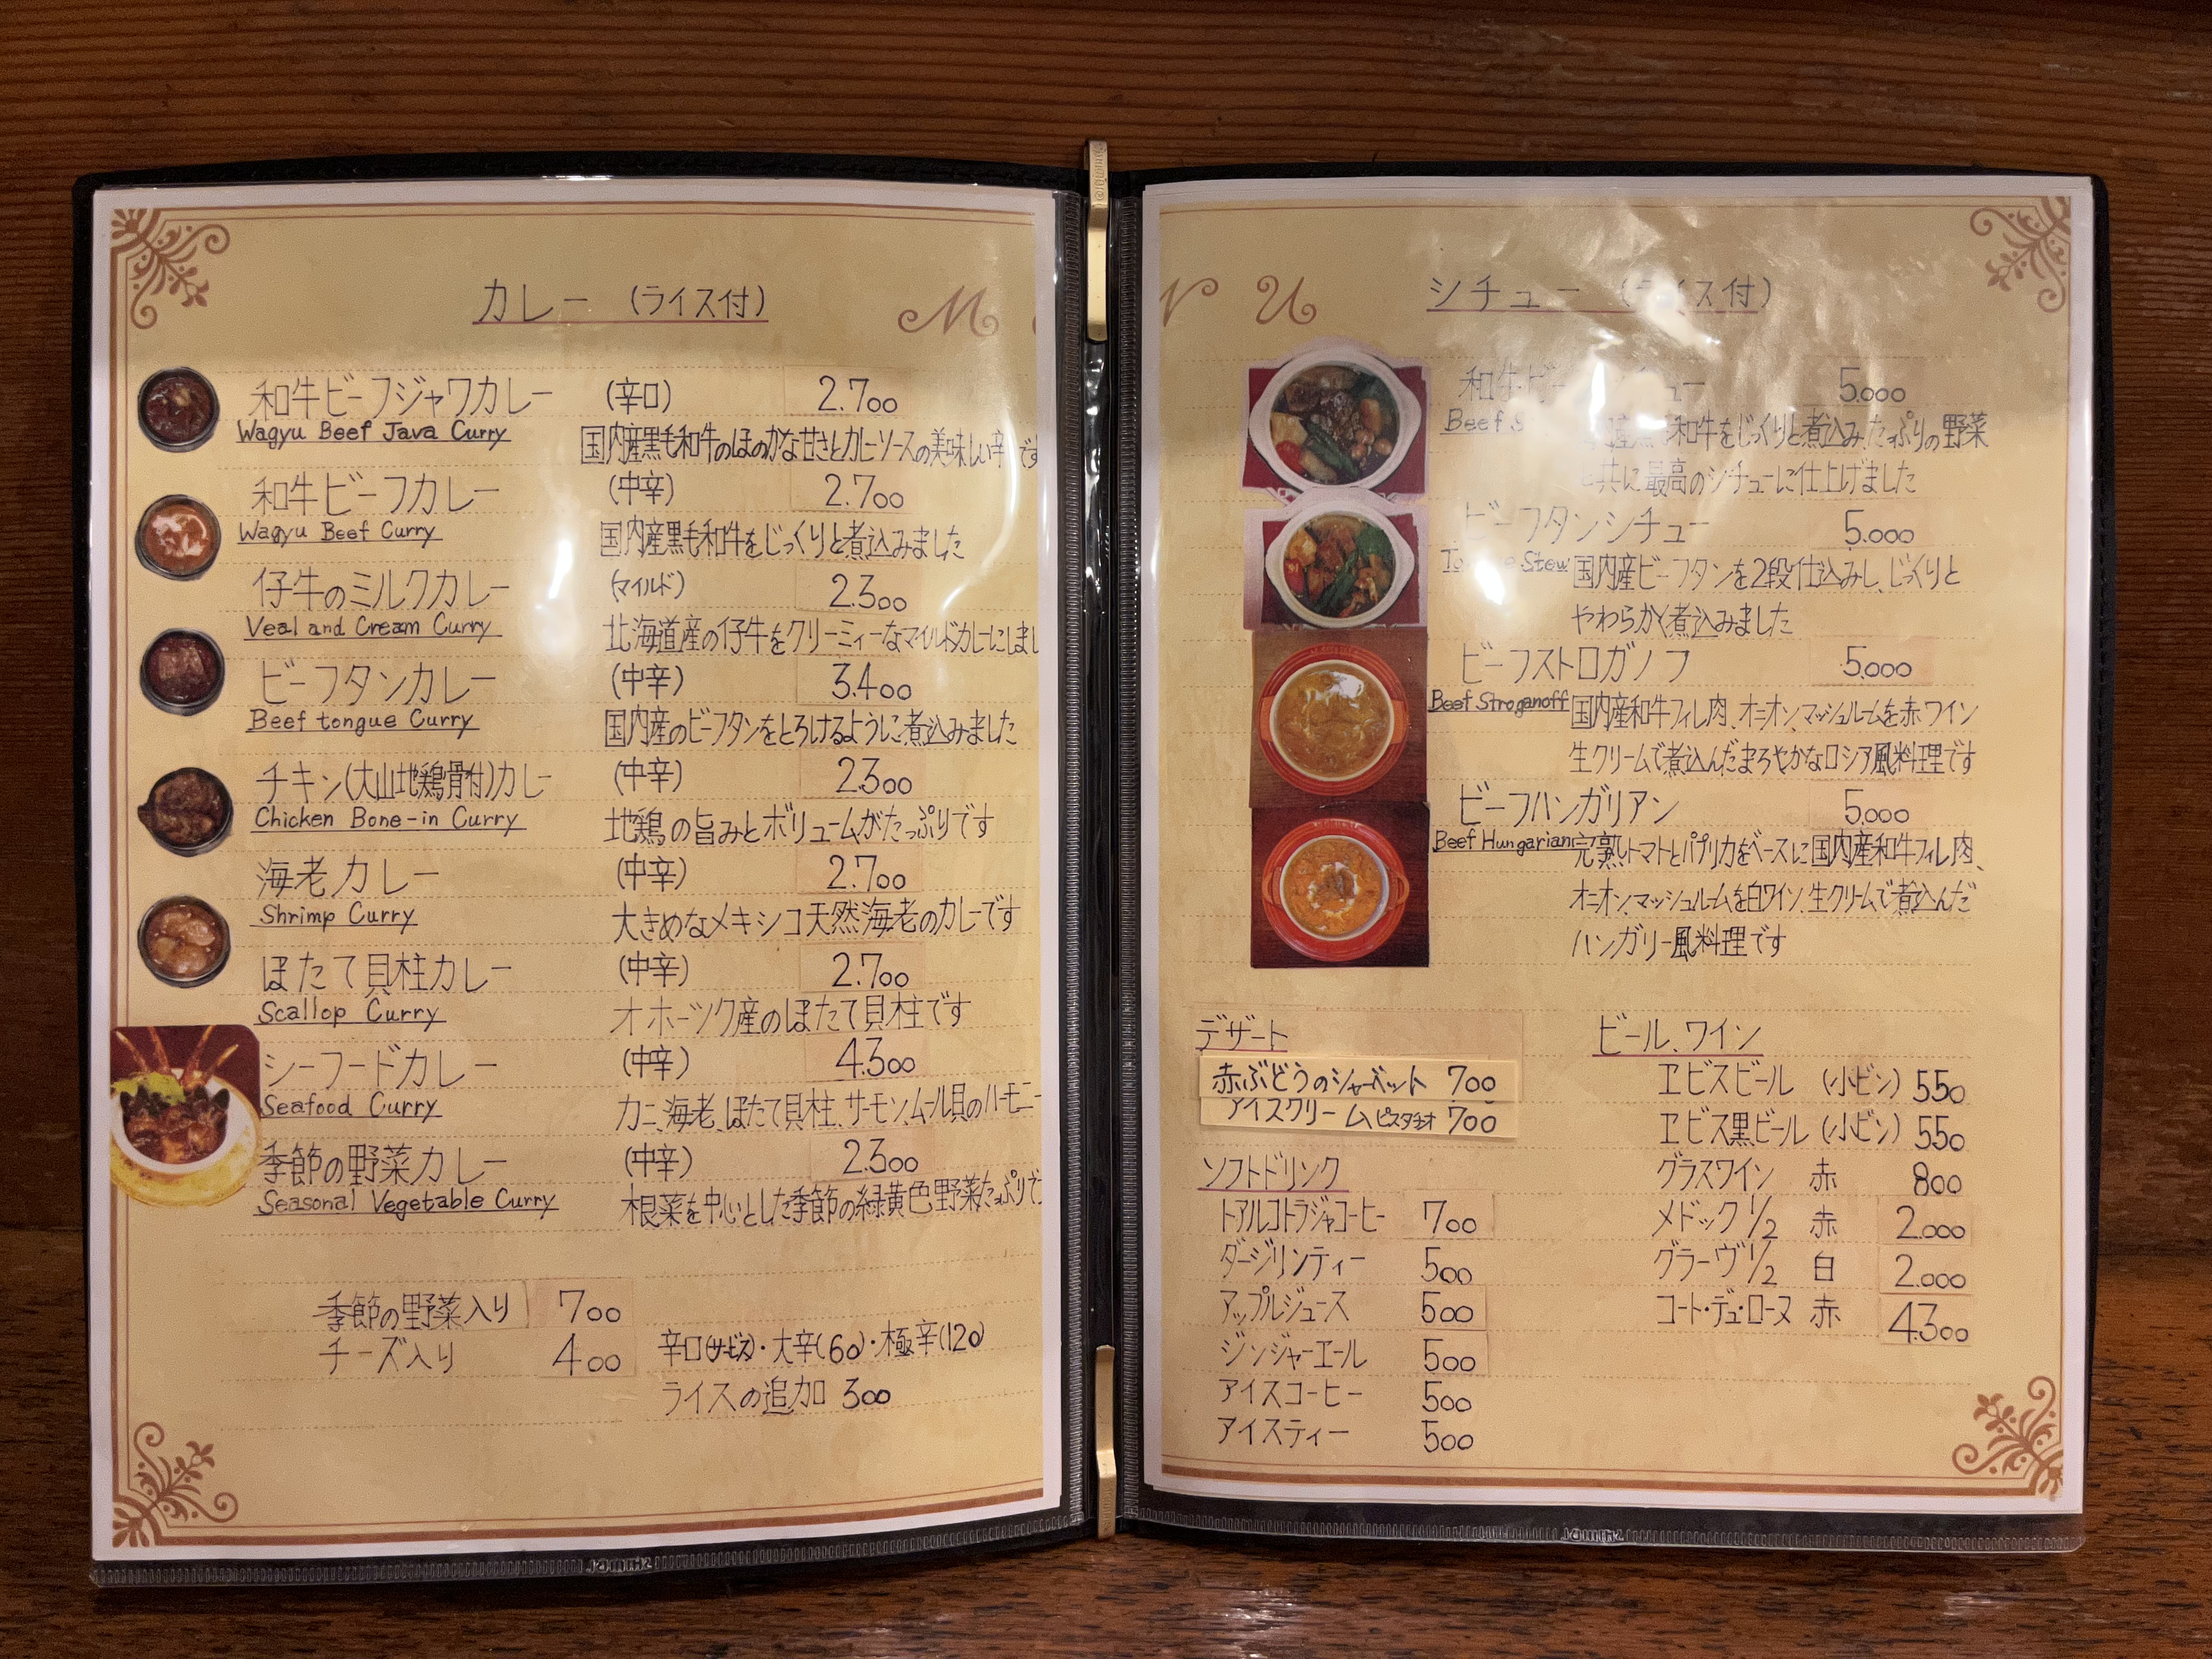 カレー (ライス付)
M
和牛ビーフジャワカレー (辛口) 2.700
Wagyu Beef Java Curry
国内産黒毛和牛のほのかな甘さとカレーソースの美味しい辛
和牛ビーフカレー (中辛) 2.700
Wagyu Beef Curry
国内産黒毛和牛をじっくりと煮込みました
仔牛のミルクカレー (マイルド) 2.300
Veal and Cream Curry
北海道産の仔牛をクリーミィーなマイルドカレーにしまし
ビーフタンカレー (中辛) 3.400
Beef tongue Curry
国内産のビーフタンをとろけるように煮込みました
チキン(大山地鶏骨付)カレー (中辛) 2.300
Chicken Bone-in Curry
地鶏の旨みとボリュームがたっぷりです
海老カレー (中辛) 2.700
Shrimp Curry
大きめなメキシコ天然海老のカレーです
ほたて貝柱カレー (中辛) 2.700
Scallop Curry
オホーツク産のほたて貝柱です
シーフードカレー (中辛) 4.300
Seafood Curry
カニ、海老、ほたて貝柱、サーモン、ムール貝のハーモニー
季節の野菜カレー (中辛) 2.300
Seasonal Vegetable Curry
根菜を中心とした季節の緑黄色野菜たっぷりで
季節の野菜入り 700
チーズ入り 400
辛口(サービス)・大辛(60)・極辛(120)
ライスの追加 300
N U
シチュー (ライス付)
和牛ビー チュー 5.000
Beef
和牛をじっくりと煮込み、たっぷりの野菜
と共に最高のシチューに仕上げました
ビーフタンシチュー 5.000
Stew
国内産ビーフタンを2段仕込みし、じっくりと
やわらかく煮込みました
ビーフストロガノフ 5.000
Beef Stroganoff
国内産和牛フィレ肉、オニオン、マッシュルームを赤ワイン
生クリームで煮込んだまろやかなロシア風料理です
ビーフハンガリアン 5.000
Beef Hungarian
完熟トマトとパプリカをベースに国内産和牛フィレ肉、
オニオン、マッシュルームを白ワイン、生クリームで煮込んだ
ハンガリー風料理です
デザート
赤ぶどうのシャーベット 700
アイスクリーム ピスタチオ 700
ソフトドリンク
トアルコトラジャコーヒー 700
ダージリンティー 500
アップルジュース 500
ジンジャーエール 500
アイスコーヒー 500
アイスティー 500
ビール、ワイン
ヱビスビール (小ビン) 550
ヱビス黒ビール (小ビン) 550
グラスワイン 赤 800
メドック 1/2 赤 2.000
グラーヴ 1/2 白 2.000
コート・デュ・ローヌ 赤 4.300